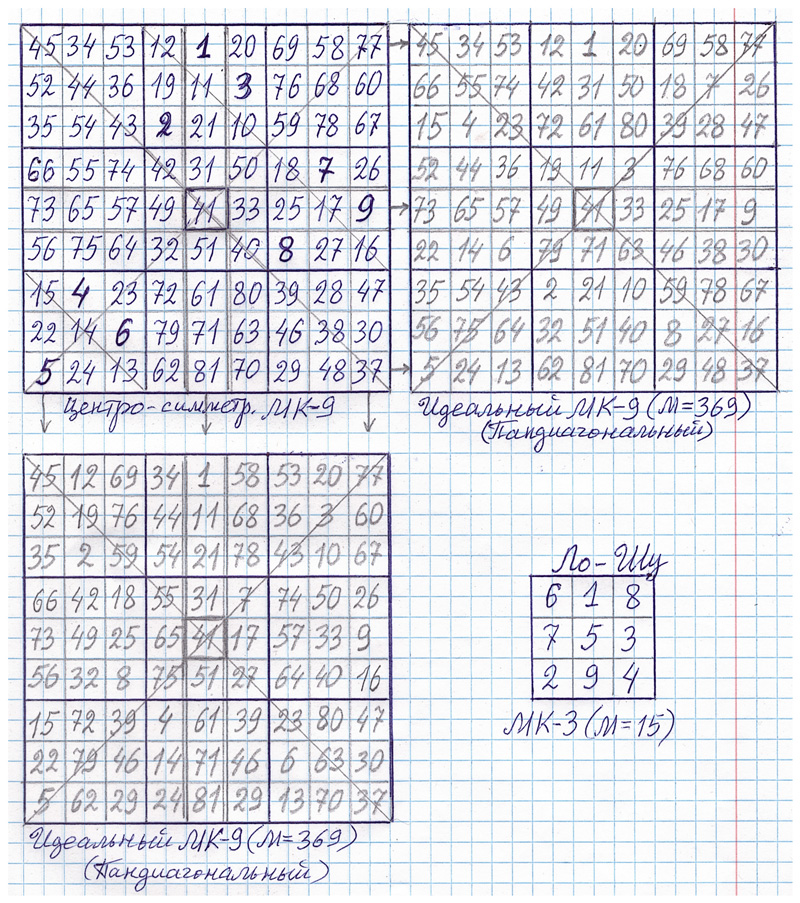 45 34 53 12 1 20 69 58 77
52 44 36 19 11 3 76 68 60
35 54 43 2 21 10 59 78 67
66 55 74 42 31 50 18 7 26
73 65 57 49 41 33 25 17 9
56 75 64 32 51 40 8 27 16
15 4 23 72 61 80 39 28 47
22 14 6 79 71 63 46 38 30
5 24 13 62 81 70 29 48 37
Центро-симметр. МК-9
45 34 53 12 1 20 69 58 77
66 55 74 42 31 50 18 7 26
15 4 23 72 61 80 39 28 47
52 44 36 19 11 3 76 68 60
73 65 57 49 41 33 25 17 9
22 14 6 79 71 63 46 38 30
35 54 43 2 21 10 59 78 67
56 75 64 32 51 40 8 27 16
5 24 13 62 81 70 29 48 37
Идеальный МК-9 (М=369)
(Пандиагональный)
45 12 69 34 1 58 53 20 77
52 19 76 44 11 68 36 3 60
35 2 59 54 21 78 43 10 67
66 42 18 55 31 7 74 50 26
73 49 25 65 41 17 57 33 9
56 32 8 75 51 27 64 40 16
15 72 39 4 61 39 23 80 47
22 79 46 14 71 46 6 63 30
5 62 29 24 81 29 13 70 37
Идеальный МК-9 (М=369)
(Пандиагональный)
Ло-Шу
6 1 8
7 5 3
2 9 4
МК-3 (М=15)